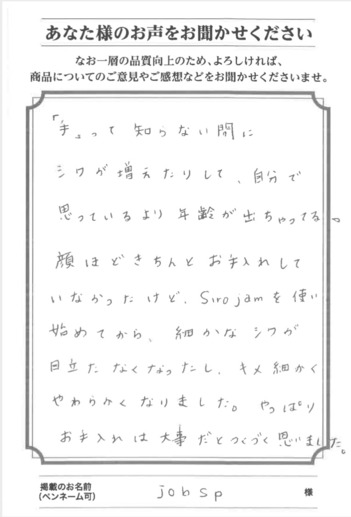 あなた様のお声をお聞かせください
なお一層の品質向上のため、よろしければ、
商品についてのご意見やご感想などをお聞かせくださいませ。
「手」って 知らない間に
シワが増えたりして、自分で
思っているより年齢が出ちゃってる。
顔ほどきちんとお手入れして
いなかったけど、Siro jamを使い
始めてから、細かなシワが
目立たなくなったし、キメ細かく
やわらかくなりました。やっぱり
お手入れは大事だとつくづく思いました。
掲載のお名前
(ペンネーム可)
jobsp
様